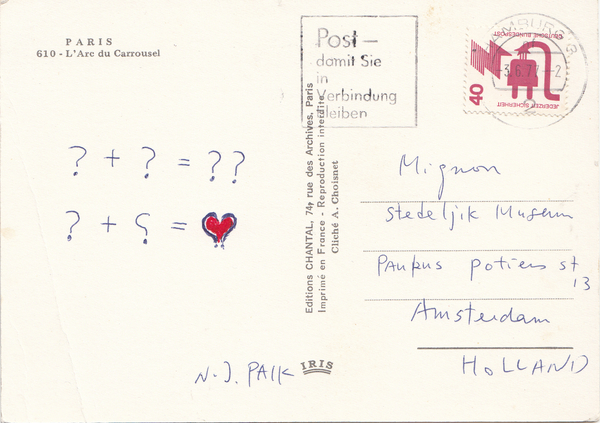 PARIS
610 - L'Arc du Carrousel
Post –
damit Sie
in
Verbindung
bleiben
HAMBURG
-3.6.77--2
DEUTSCHE BUNDESPOST
40
JEDERZEIT SICHERHEIT
? + ? = ??
? + ʕ = ♥
Editions CHANTAL, 74, rue des Archives, Paris
Imprimé en France - Reproduction interdite
Cliché A. Choisnet
Mignon
Stedeljik Museum
Paulus Potters st
13
Amsterdam
HOLLAND
N.J. PAIK
IRIS